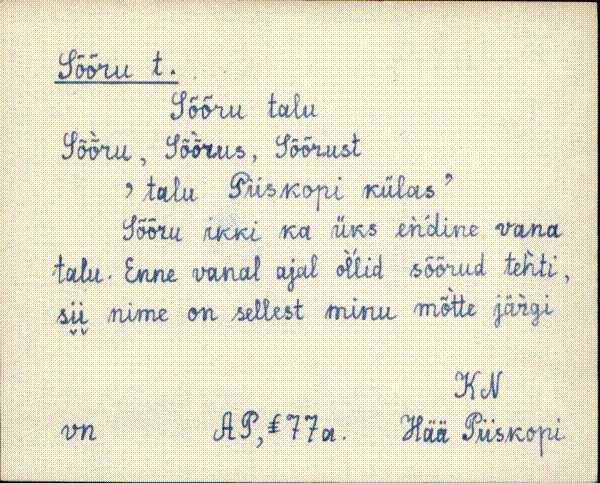 Sõõru t.
Sõõru talu
Sõ̀õru, Sõ̀õrus, Sõõrust
, talu Piiskopi külas ’
Sõõru ikki ka üks eǹ́dine vana
talu. Enne vanal ajal oĺ̀lid sõõrud teh̀ti,
si̬i̬ nime on sellest minu mõ̀tte jär̀gi
KN
vn AP, 77a. Hää Piiskopi